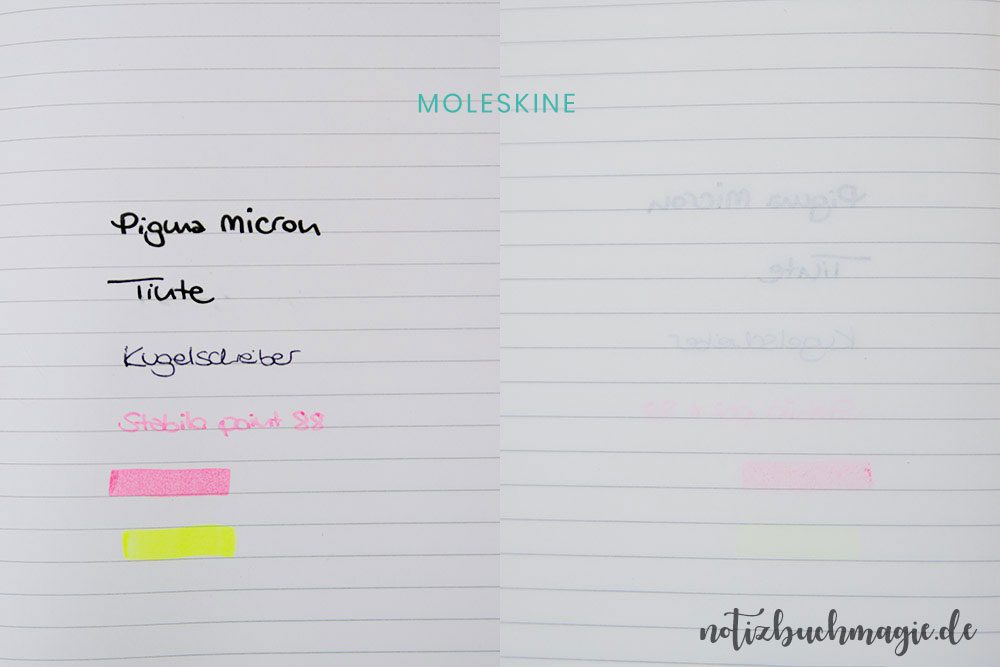 MOLESKINE
Pigma micron
Tinte
Kugelschreiber
Stabilo point 88
notizbuchmagie.de